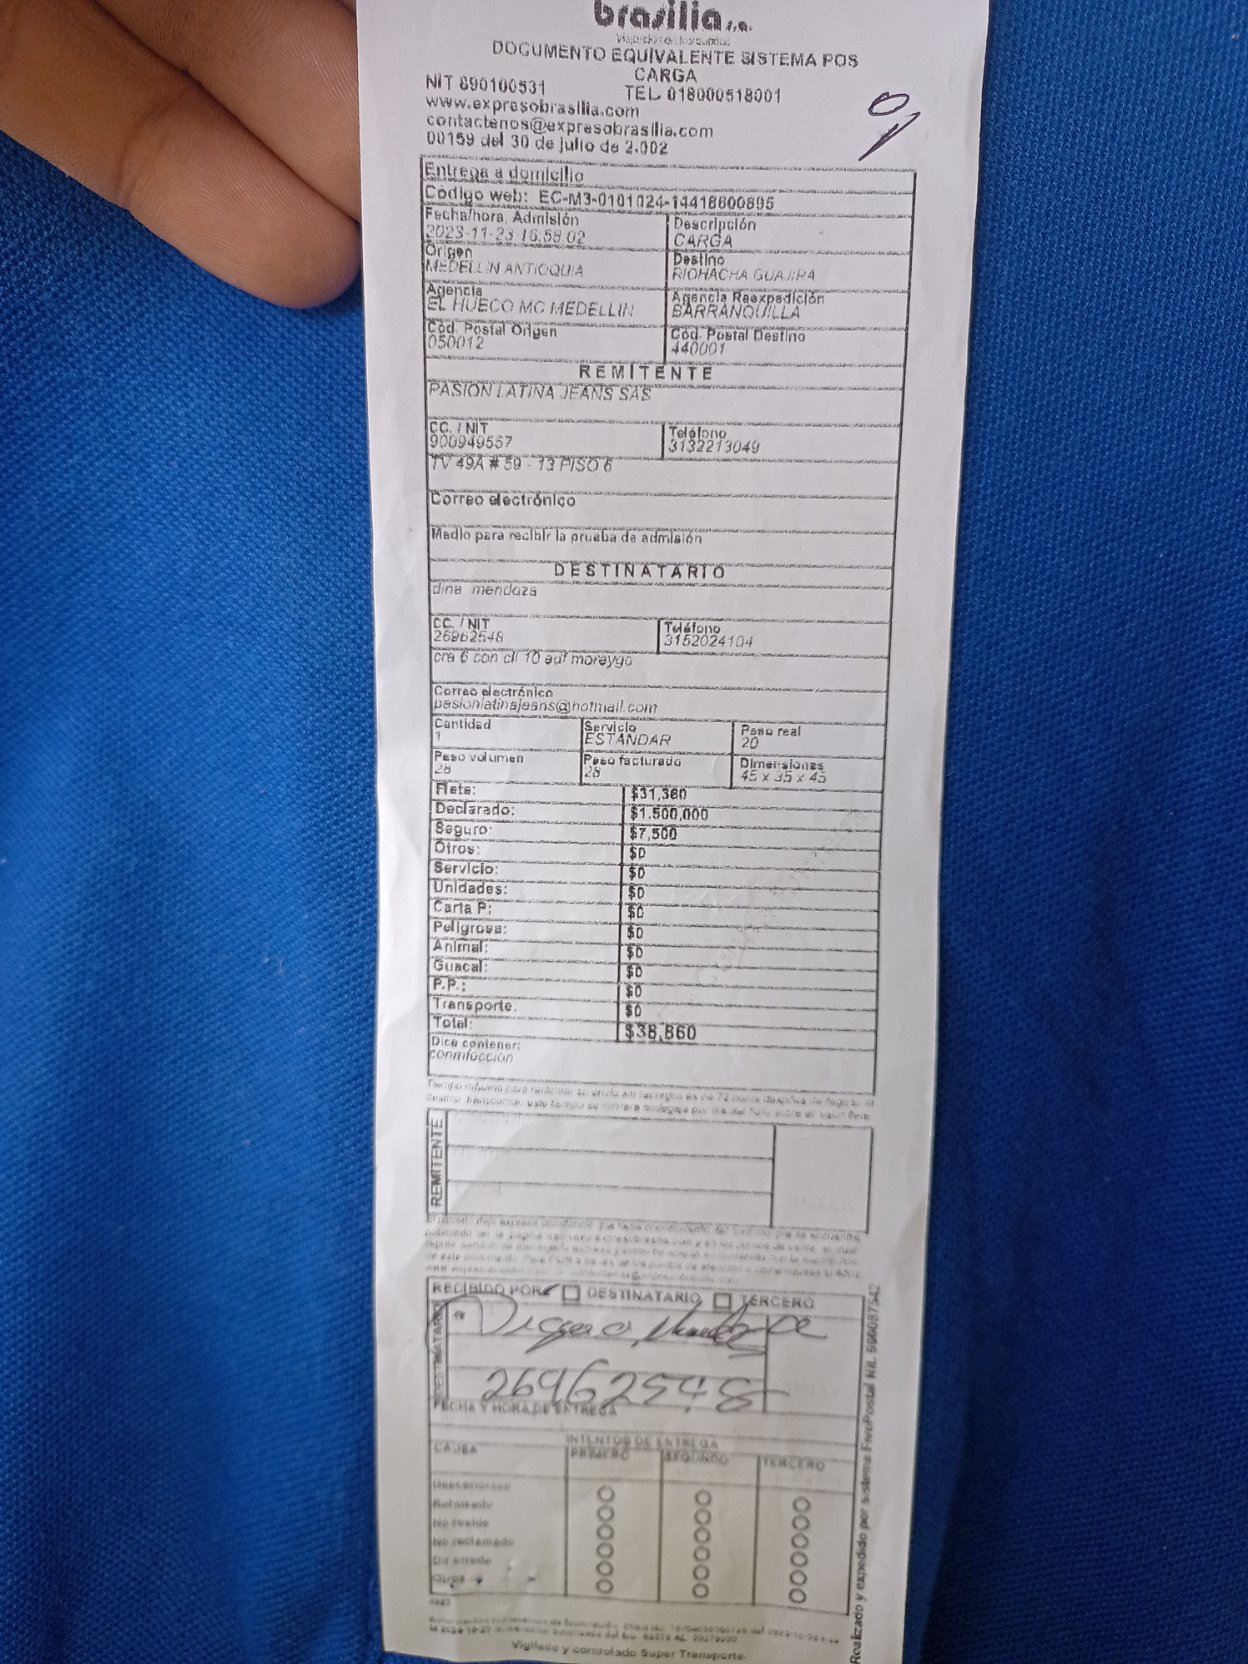 brasilia s.a.
DOCUMENTO EQUIVALENTE SISTEMA POS
CARGA
NIT 890100531 TEL 018000518001
www.expresobrasilia.com
contactenos@expresobrasilia.com
00159 del 30 de julio de 2.002
Entrega a domicilio
Código web: EC-M3-0101024-14418600895
Fecha/hora, Admisión Descripción
2023-11-23 16:59:02 CARGA
Origen Destino
MEDELLIN ANTIOQUIA RIOHACHA GUAJIRA
Agencia Agencia Reexpedición
EL HUECO MC MEDELLIN BARRANQUILLA
Cód. Postal Origen Cód. Postal Destino
050012 440001
REMITENTE
PASION LATINA JEANS SAS
CC. / NIT Teléfono
900949567 3132213049
TV 49A # 59 - 13 PISO 6
Correo electrónico
Medio para recibir la prueba de admisión
DESTINATARIO
dina mendoza
CC. / NIT Teléfono
26962548 3152024104
cra 6 con cll 10 edf moreygo
Correo electrónico
pasionlatinajeans@hotmail.com
Cantidad Servicio Peso real
1 ESTANDAR 20
Peso volumen Peso facturado Dimensiones
28 28 45 x 35 x 45
Flete: $31,360
Declarado: $1.500,000
Seguro: $7,500
Otros: $0
Servicio: $0
Unidades: $0
Carta P: $0
Peligrosa: $0
Animal: $0
Guacal: $0
P.P.: $0
Transporte: $0
Total: $38,860
Dice contener:
conmfeccion
REMITENTE
RECIBIDO POR DESTINATARIO TERCERO
26962548
FECHA Y HORA DE ENTREGA
INTENTOS DE ENTREGA
CAUSA PRIMERO SEGUNDO TERCERO
Desconocido
Rehusado
No reside
No reclamado
Dir errada
Otros
Realizado y expedido por sistema FivePostal Nit.
Vigilado y controlado Super Transporte.